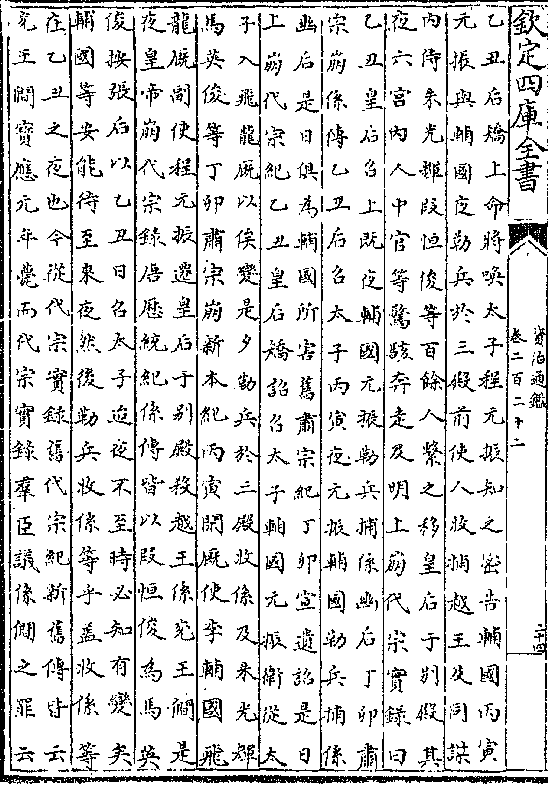 欽定四庫全書
資治通鑑
卷二百二十二
二十四
乙丑后矯上命將喚太子程元振知之密告輔國丙寅
元振與輔國夜勒兵於三殿前使人收捕越王及同謀
内侍朱光輝段恒俊等百餘人繫之移皇后于别殿其
夜六宫内人中官等驚駭奔走及明上崩代宗實録曰
乙丑皇后召上既夜輔國元振勒兵捕係幽后丁卯肅
宗崩係傳乙丑后召太子丙寅夜元振輔國勒兵捕係
幽后是日俱為輔國所害舊肅宗紀丁卯宣遺詔是日
上崩代宗紀乙丑皇后矯詔召太子輔國元振衛從太
子入飛龍廐以俟變是夕勒兵於三殿收係及朱光輝
馬英俊等丁卯肅宗崩新本紀丙寅閑廐使李輔國飛
龍廐副使程元振遷皇后于别殿殺越王係兖王僴是
夜皇帝崩代宗録唐歴統紀係傳皆以段恒俊為馬英
俊按張后以乙丑日召太子迨夜不至時必知有變矣
輔國等安能待至來夜然後勒兵收係等乎盖收係等
在乙丑之夜也今從代宗實録舊代宗紀新舊傳皆云
兖王僴寶應元年薨而代宗實録羣臣議係僴之罪云